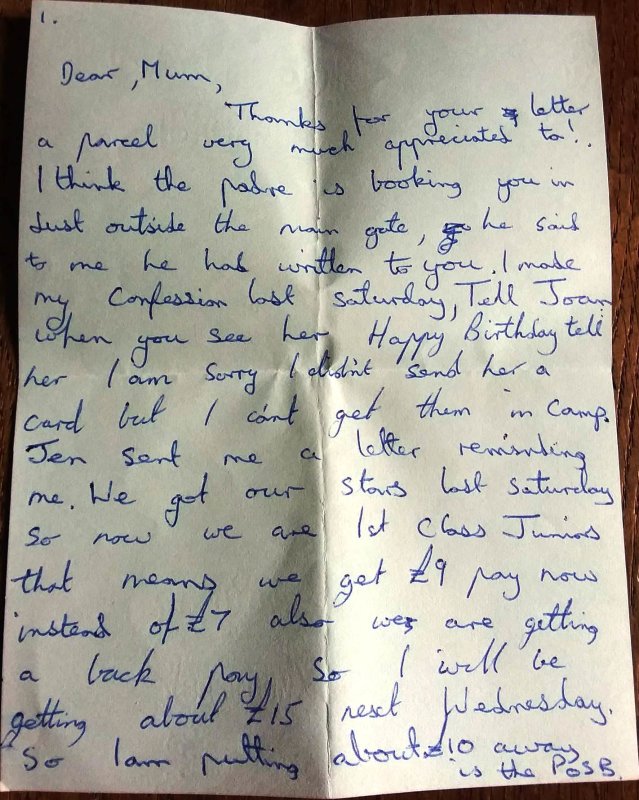 1.
Dear, Mum,
Thanks for your letter
a parcel very much appreciated to!.
I think the padre is booking you in
Just outside the main gate, he said
to me he has written to you. I made
my Confession last Saturday, Tell Joan
when you see her Happy Birthday tell
her I am Sorry I didn't send her a
card but I can't get them in Camp.
Jen sent me a letter reminding
me. We got our stars last Saturday
So now we are 1st Class Juniors
that means we get £9 pay now
instead of £7 also we are getting
a back pay, So I will be
getting about £15 next Wednesday.
So I am putting about £10 away
is the POSB.